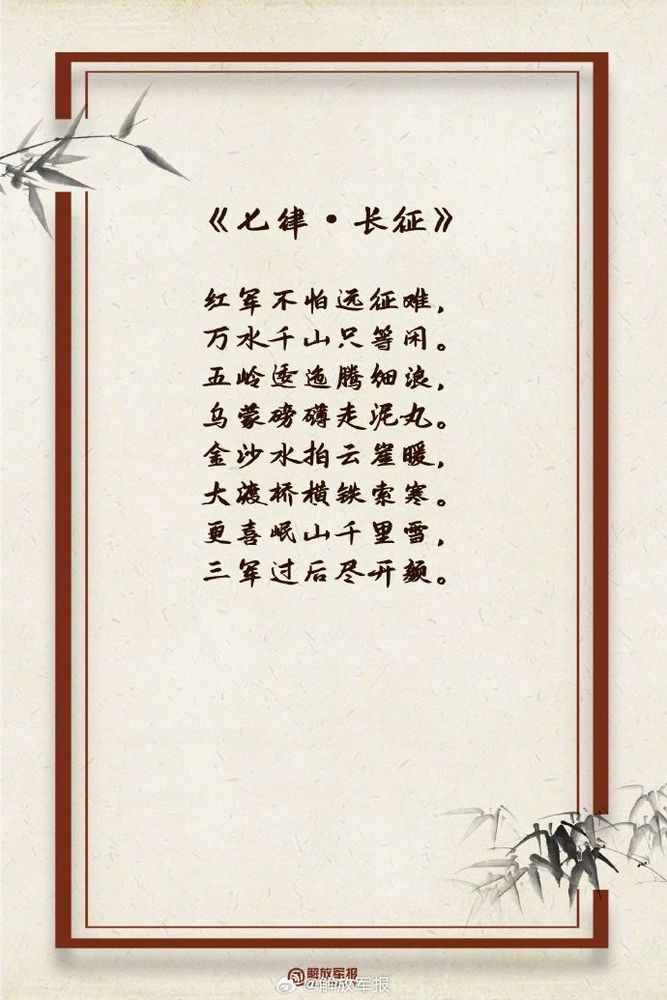 《七律·长征》
红军不怕远征难，
万水千山只等闲。
五岭逶迤腾细浪，
乌蒙磅礴走泥丸。
金沙水拍云崖暖，
大渡桥横铁索寒。
更喜岷山千里雪，
三军过后尽开颜。
解放军报
@解放军报